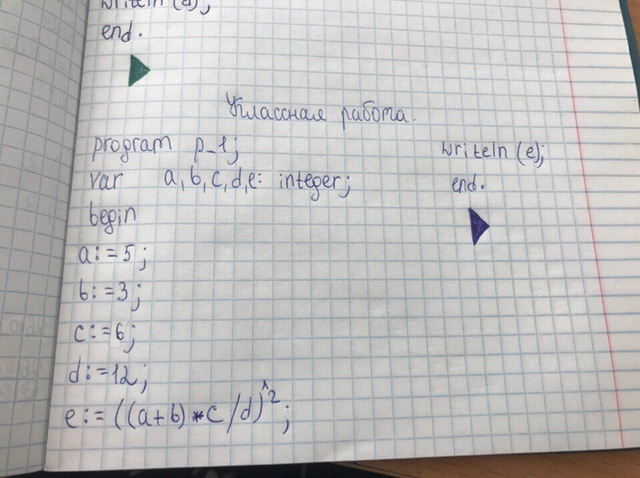 writeln (d);
end.
Классная работа.
program p_1;
var a, b, c, d, e: integer;
begin
a:=5;
b:=3;
c:=6;
d:=12;
e:=((a+b)*c/d)^2;
writeln (e);
end.